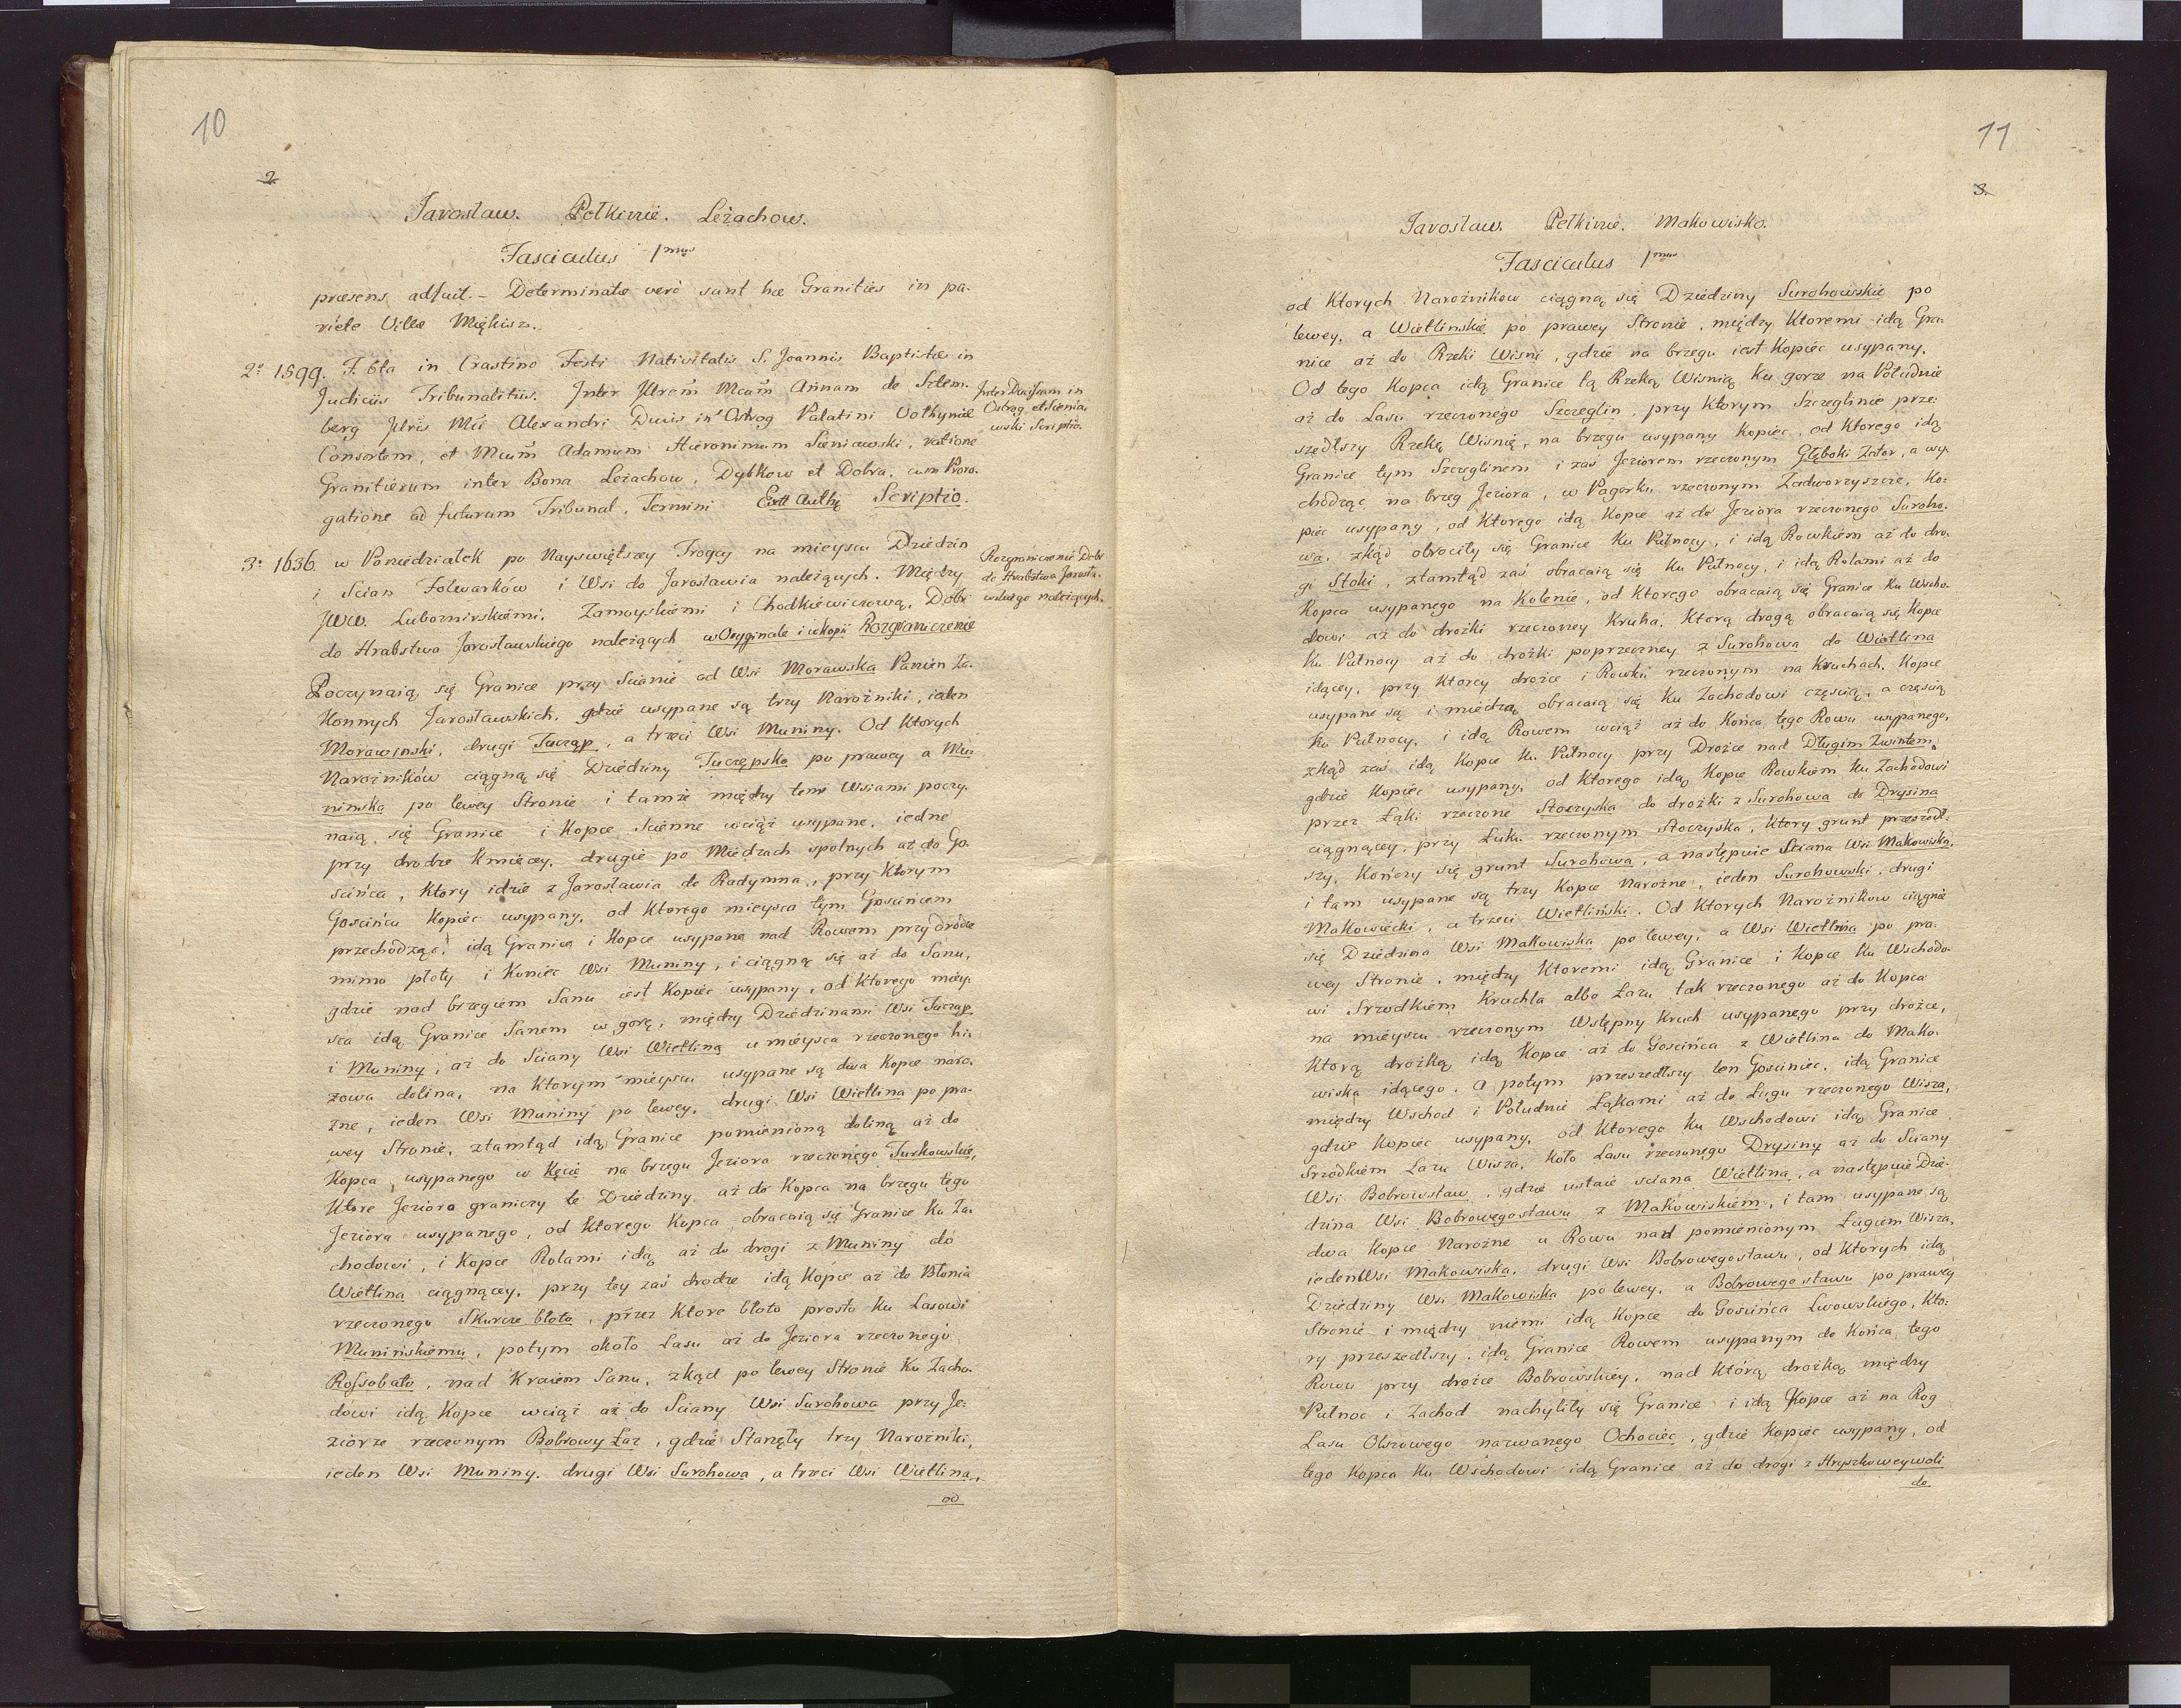 10
2
Jarosław. Pełkinie. Leżachow.
Fasciculus 1mus
præsens adfuit. – Determinatæ verò sunt hæ Granities in pa-
riete Villæ Miękisz.
2o 1599. F. 6ta in Crastino Festi Nativitatis S. Joannis Baptistæ in
Judiciis Tribunalitiis. Inter Illrem Mcam Annam de Sztem-
berg Illris Mci Alexandri Ducis in Ostrog Palatini Volhyniæ
Consortem, et Mcum Adamum Hieronimum Sieniawski, ratione
Granitierum inter Bona Leżachow, Dybkow et Dobra, cum Proro-
gatione ad futurum Tribunal. Termini Extt Auth Scriptio.
Inter Ducissam in
Ostrog et Sienia-
wski Scriptio.
3o 1636. w Poniedziałek po Nayswiętszey Troycy na mieyscu Dziedzin
i Scian Folwarków i Wsi do Jarosławia należących. Między
JWW. Lubomirskiemi, Zamoyskiemi i Chodkiewiczową, Dobr
do Hrabstwa Jarosławskiego należących w Oryginale i w kopii Rozgraniczenie
Rozgraniczenie Dobr
do Hrabstwa Jarosła-
wskiego należących.
Poczynaią się Granice przy Scianie od Wsi Morawska Panien Za-
konnych Jarosławskich, gdzie usypane są trzy Narożniki, ieden
Morawinski, drugi Tucząp, a trzeci Wsi Muniny. Od ktorych
Narożników ciągną się Dziedziny Tuczępska po prawey a Mu-
ninska po lewey Stronie i tamże między temi Wsiami poczy-
naią się Granice i Kopce Scienne wciąż usypane, iedne
przy drodze Kmiecey, drugie po Miedzach spolnych aż do Go-
scińca, ktory idzie z Jarosławia do Radymna, przy ktorym
Gościńcu Kopiec usypany, od ktorego mieysca tym Goscińcem
przechodząc, idą Granice i Kopce usypane nad Rowem przy drodze
mimo płoty i Koniec Wsi Muniny, i ciągną się aż do Sanu,
gdzie nad brzegiem Sanu iest Kopiec usypany, od ktorego miey-
sca idą Granice Sanem w gorę, między Dziedzinami Wsi Tucząp
i Muniny, aż do Sciany Wsi Wietlina u mieysca rzeczonego
zowa dolina, na ktorym mieyscu usypane są dwa Kopce naro-
żne, ieden Wsi Muniny po lewey, drugi Wsi Wietlina po pra-
wey Stronie, ztamtąd idą Granice pomienioną doliną aż do
Kopca, usypanego w Kęcie na brzegu Jeziora rzeczonego Turkowskie,
ktore Jezioro graniczy te Dziedziny aż do Kopca na brzegu tego
Jeziora usypanego, od ktorego Kopca obracaią się Granice ku Za-
chodowi, i Kopce Rolami idą aż do drogi z Muniny do
Wietlina ciągnącey, przy tey zaś drodze idą Kopce aż do Błonia
rzeczonego Skurcze błoto, przez ktore błoto prosto ku Lasowi
Munińskiemu, potym około Lasu aż do Jeziora rzeczonego
Rossobato, nad Kraiem Sanu, zkąd po lewey Stronie ku Zacho-
dowi idą Kopce wciąż aż do Sciany Wsi Surohowa przy Je-
ziorze rzeczonym Bobrowy Łaz, gdzie Stanęły trzy Narożniki,
ieden Wsi Muniny, drugi Wsi Surohowa, a trzeci Wsi Wietlina,
od
11
3.
Jarosław. Pełkinie. Makowisko.
Fasciculus 1mus
od ktorych Narożnikow ciągną się Dziedziny Surohowskie po
lewey, a Wietlinskie po prawey Stronie, między ktoremi idą Gra-
nice aż do Rzeki Wiśni, gdzie na brzegu iest Kopiec usypany.
Od tego Kopca idą Granice tą Rzeką Wisnią ku gorze na Południe
aż do Lasu rzeczonego Szczeglin, przy ktorym Szczeglinie prze-
szedłszy Rzekę Wisnię, na brzegu usypany Kopiec, od ktorego idą
Granice tym Szczeglinem i zaś Jeziorem rzeczonym Głęboki Zator, a wy-
chodząc na brzeg Jeziora, w Pagorku rzeczonym Zadworzyszcze, Ko-
piec usypany, od ktorego idą Kopce aż do Jeziora rzeczonego Suroho-
wa, zkąd obrociły się Granice ku Pułnocy, i idą Rowkiem aż do dro-
gi Stoki, ztamtąd zaś obracaią się ku Pułnocy, i idą Rolami aż do
Kopca usypanego na Kolenie, od ktorego obracaią się Granice ku Wscho-
dowi aż do drożki rzeczoney Kruha, ktorą drogą obracaią się Kopce
ku Pułnocy aż do drożki poprzeczney z Surohowa do Wietlina
idącey, przy ktorey drożce i Rowku rzeczonym na Kruchach, Kopce
usypane są i miedzą obracaią się ku Zachodowi częscią, a częscią
ku Pułnocy, i idą Rowem wciąż aż do Końca tego Rowu usypanego,
zkąd zaś idą Kopce ku Pułnocy przy Drożce nad Długim Zwintem,
gdzie Kopiec usypany, od ktorego idą Kopce Rowkiem ku Zachodowi
przez Łąki rzeczone Stoczyska do drożki z Surohowa do Drysina
ciągnącey, przy Łuku rzeczonym Stoczyska, ktory grunt przeszedł-
szy, Kończy się grunt Surohowa, a następuie Sciana Wsi Makowiska,
i tam usypane są trzy Kopce Narożne, ieden Surohowski, drugi
Makowiecki, a trzeci Wietliński. Od ktorych Narożnikow ciągnie
się Dziedzina Wsi Makowiska po lewey, a Wsi Wietlina po pra-
wey Stronie, między ktoremi idą Granice i Kopce ku Wschodo-
wi Srzodkiem Kruchla albo Łazu tak rzeczonego aż do Kopca
na mieyscu rzeczonym Wstępny Kruch usypanego przy drożce,
ktorą drożką idą Kopce aż do Gosćińca z Wietlina do Mako-
wiska idącego. a potym przeszedłszy ten Gosciniec, idą Granice
między Wschod i Południe Łąkami aż do Ługu rzeczonego Wisza,
gdzie Kopiec usypany, od ktorego ku Wschodowi idą Granice
Srzodkiem Łazu Wisza, koło Lasu rzeczonego Drysiny aż do Sciany
Wsi Bobrowstaw, gdzie ustaie sciana Wietlina, a następuie Dzie-
dzina Wsi Bobrowegostawu z Makowiskiem, i tam usypane są
dwa Kopce Narożne u Rowu nad pomienionym Ługiem Wisza,
ieden Wsi Makowiska, drugi Wsi Bobrowegostawu, od ktorych idą
Dziedziny Wsi Makowiska po lewey, a Bobrowego stawu po prawey
Stronie i między niemi idą Kopce do Gościńca Lwowskiego, kto-
ry przeszedłszy, idą Granice Rowem usypanym do Końca tego
Rowu przy drożce Bobrowskiey, nad którą drożką między
Pułnoc i Zachod nachyliły się Granice i idą Kopce aż na Rog
Lasu Olszowego nazwanego Ochociec, gdzie Kopiec usypany, od
tego Kopca ku Wschodowi idą Granice aż do drogi z Hryszkoweywoli
do